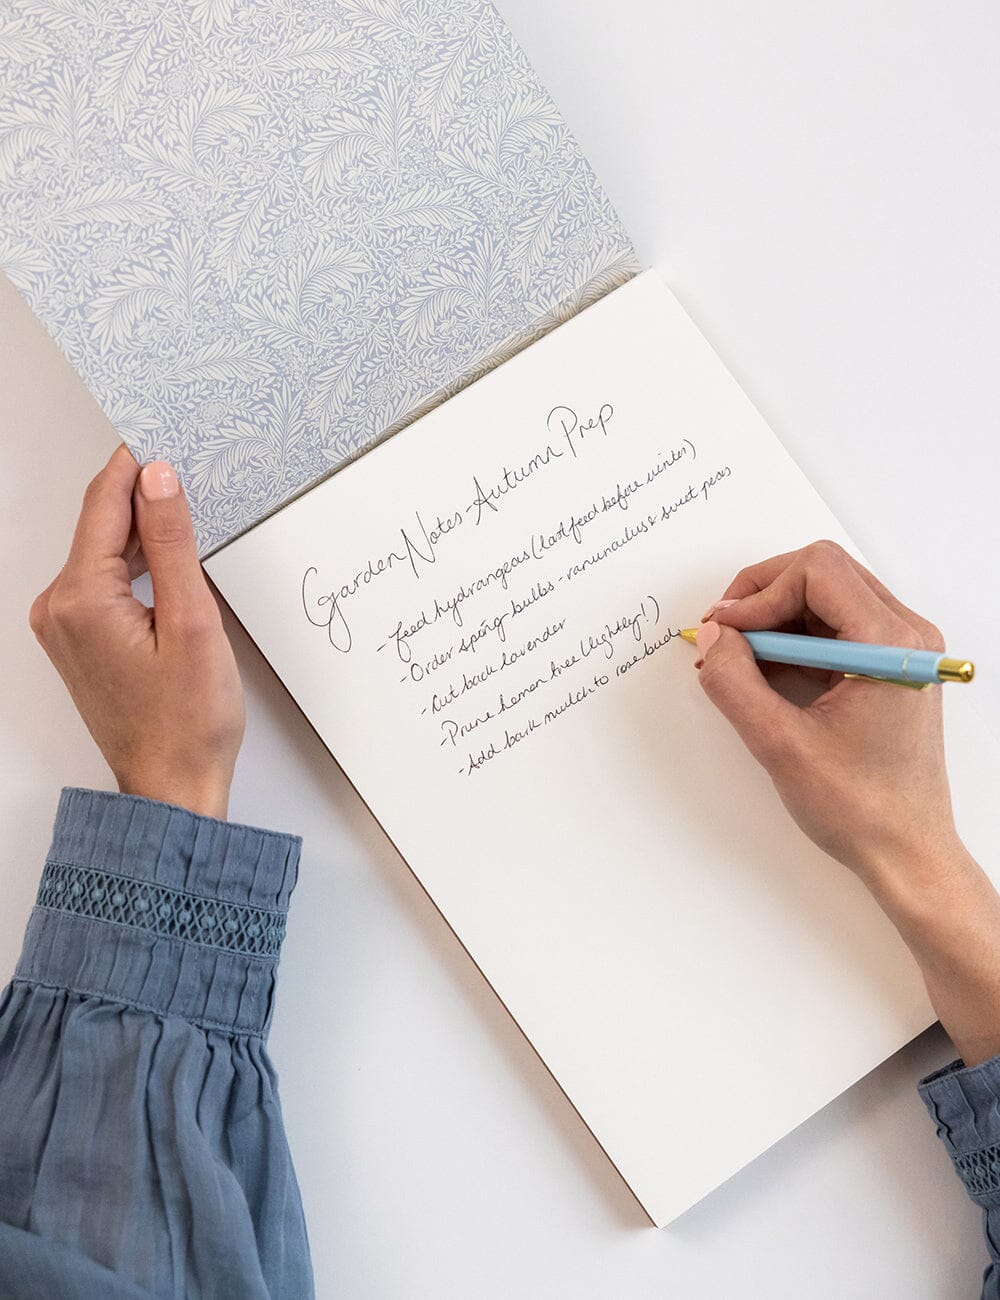 Garden Notes - Autumn Prep
- feed hydrangeas (last feed before winter)
- Order spring bulbs - ranunculus & sweet peas
- Cut back lavender
- Prune lemon tree (lightly!)
- Add bark mulch to rose beds